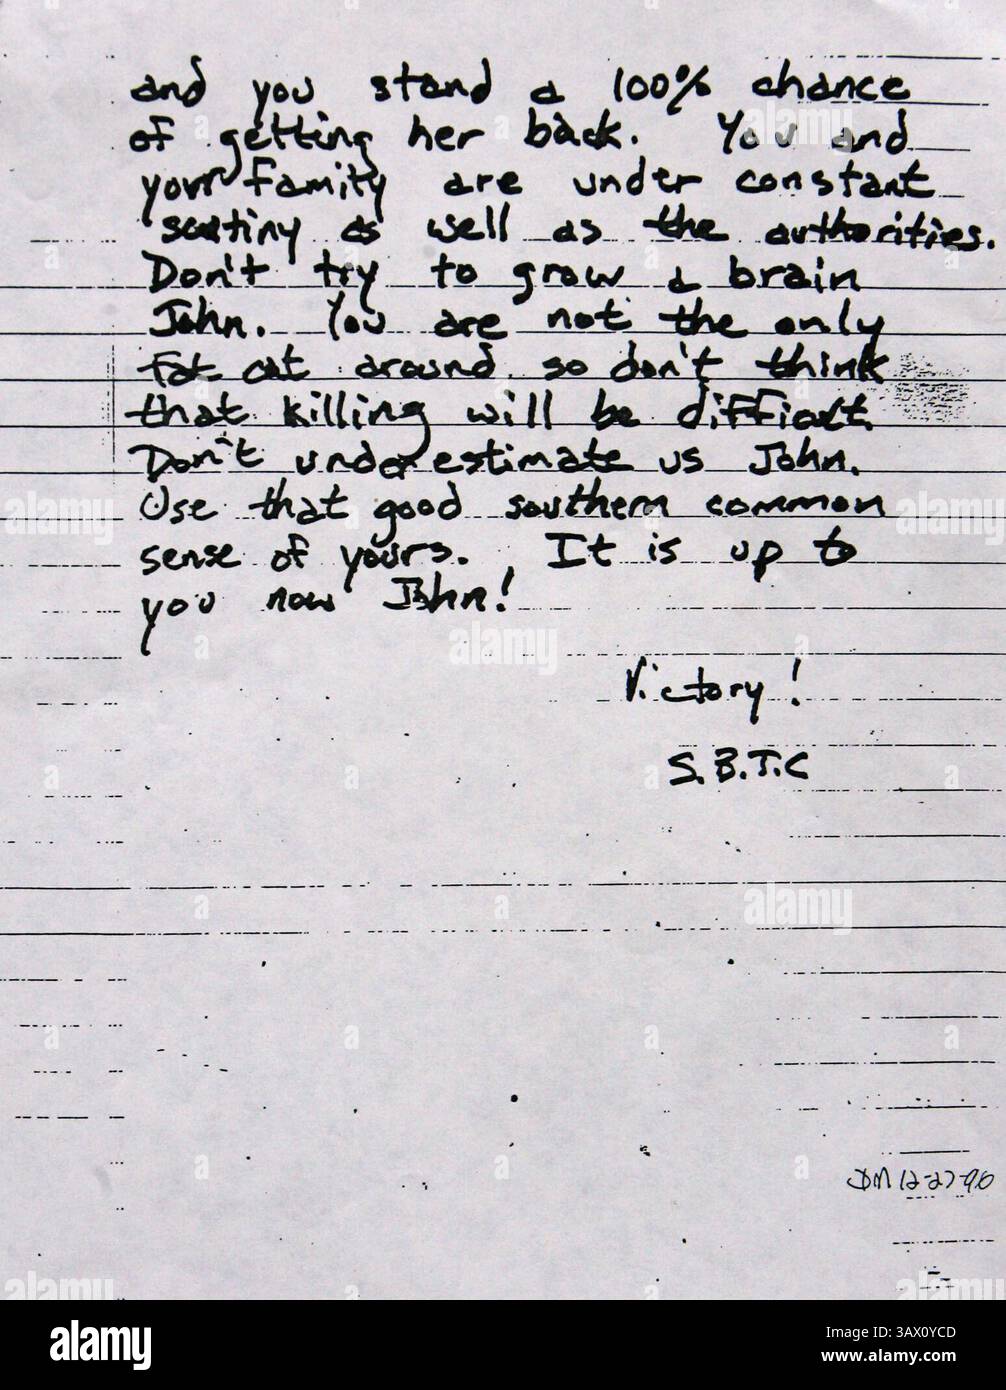 and you stand a 100% chance
of getting her back. You and
your family are under constant
scutiny as well as the authorities.
Don't try to grow a brain
John. You are not the only
fat cat around so don't think
that killing will be difficult.
Don't underestimate us John.
Use that good southern common
sense of yours. It is up to
you now John!
Victory!
S.B.T.C
12-27-96
alamy
Image ID: 3AX0YCD
www.alamy.com